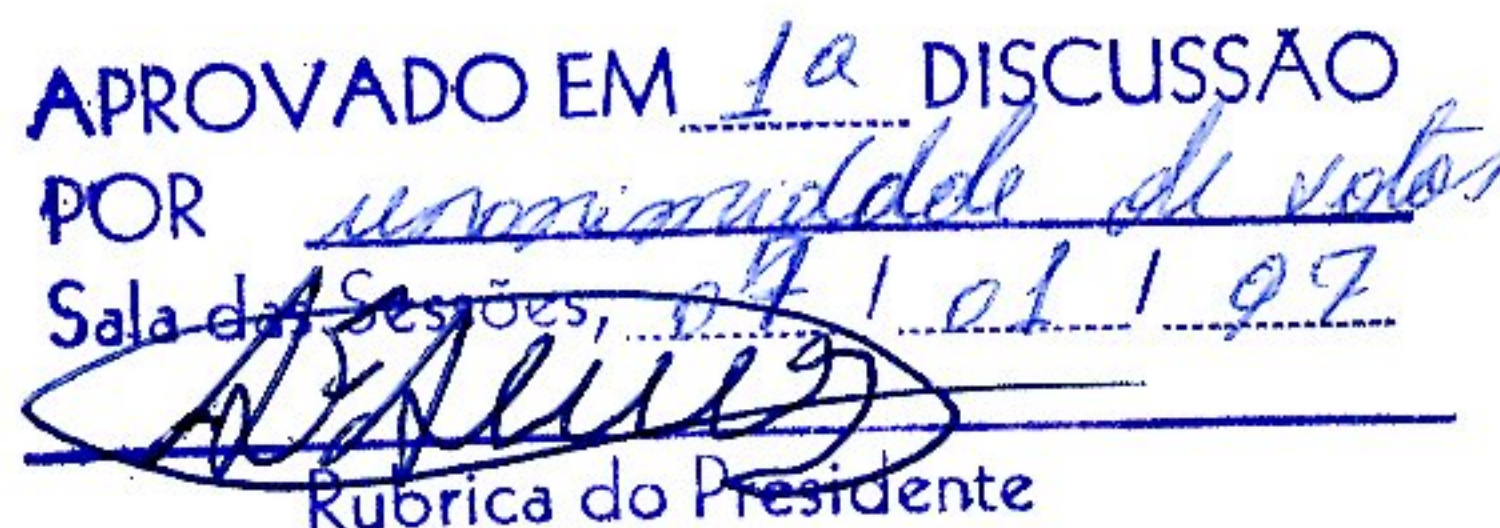 APROVADO EM 1a DISCUSSÃO
POR unanimidade de votos
Sala das Sessões, 07 / 01 / 97
Rubrica do Presidente